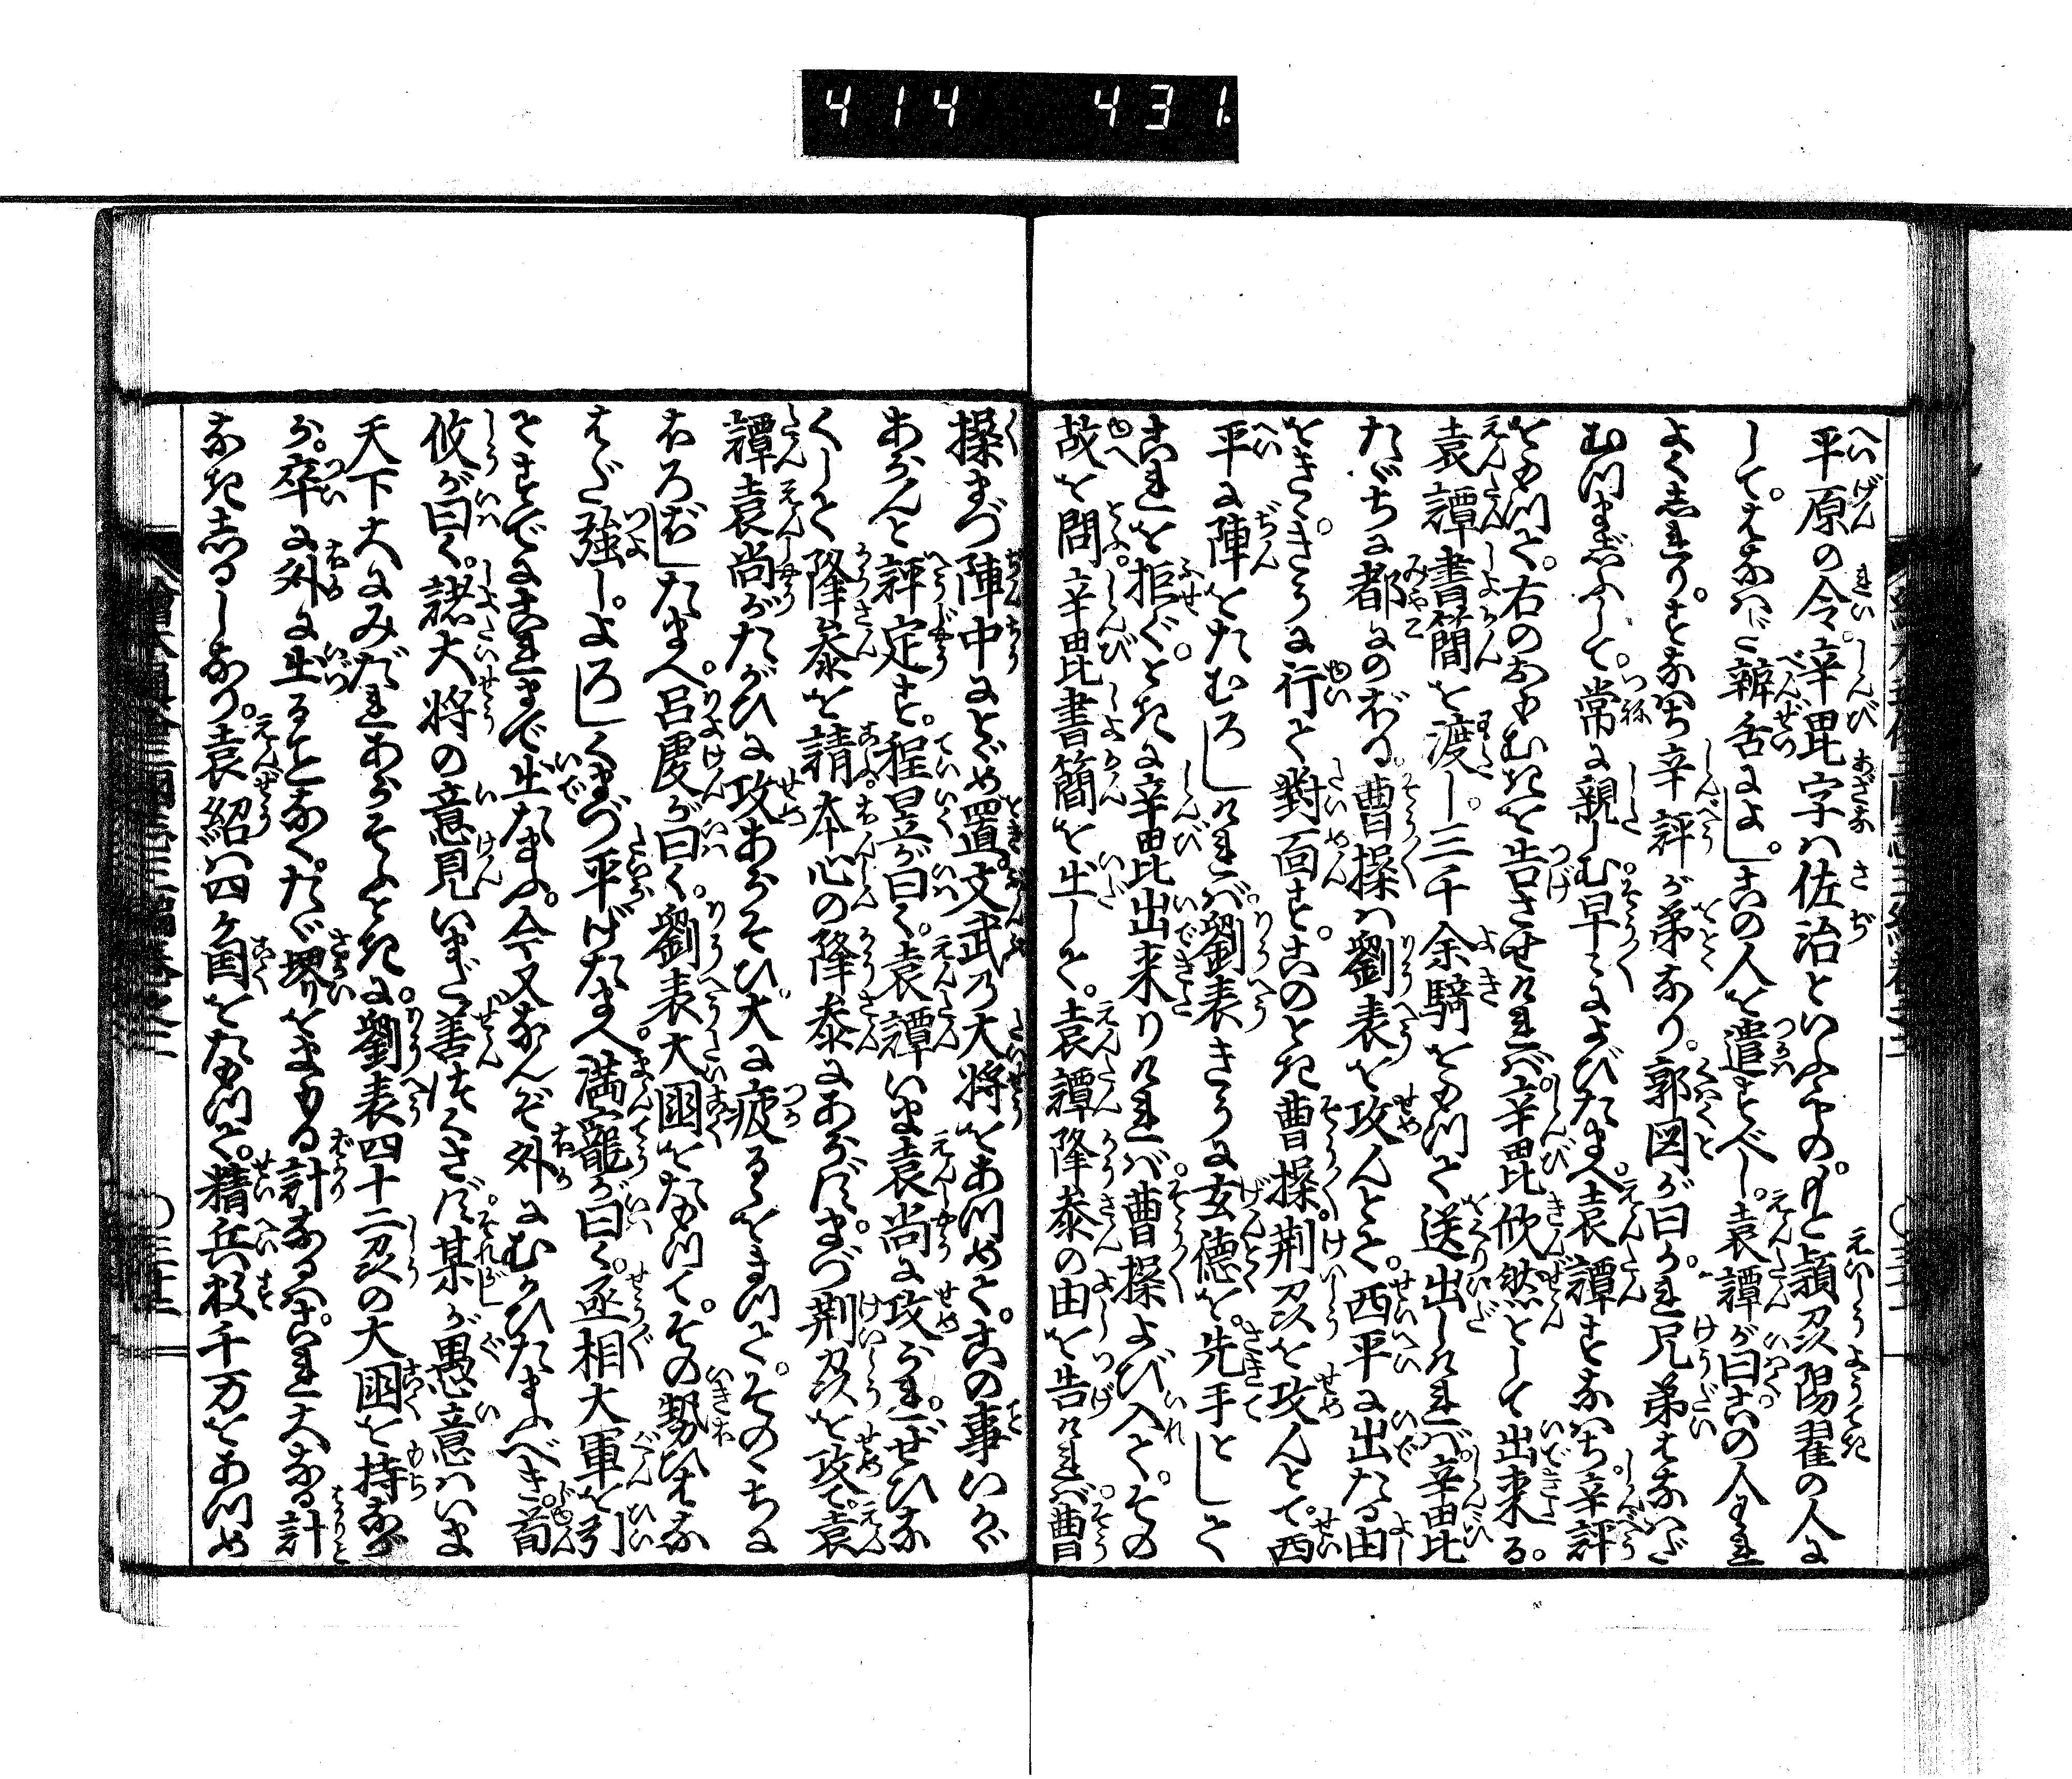 414 431
平原の令辛毘字ハ佐治といふもの。もと頴川陽翟の人に
して。はなハだ辨舌によし。この人を遣すべし。袁譚が曰この人われ
よくしれり。すなハち辛評が弟なり。郭図が曰。かれ兄弟はなハだ
むつまじふして。常に親しむ早々によびたまへ袁譚すなハち辛評
をもつて。右のおもむきを告させければ。辛毘欣然として出来る。
袁譚書簡を渡し。三千余騎をもつて送出しければ。辛毘
たゞちに都にのぼる。曹操ハ劉表を攻んとて。西平に出たる由
をきゝ。きうに行て對面す。このとき曹操。荆州を攻んとて。西
平に陣をたむろしければ。劉表きうに玄德を。先手として
これを拒ぐ。ときに辛毘出来りければ。曹操よび入て。その
故を問。辛毘書簡を出して。袁譚降泰の由を告ければ。曹
操まづ陣中にとゞめ置。文武の大将をあつめて。この事いかゞ
あらんと評定す。程昱が曰く。袁譚いま袁尚に攻られ。ぜひな
くして降泰を請。本心の降泰にあらず。まづ荆州を攻て。袁
譚袁尚がたがひに攻あらそひ。大に疲るゝをまつて。そのゝちに
ほろぼしたまへ。呂虔が曰く。劉表大国をたもつて。その勢ひはな
はだ強し。よろしくまづ平げたまへ。満寵が曰く。丞相大軍を引
てすでにこれまで出たまふ。今又なんぞ外にむかひたまふべき。荀
攸が曰く。諸大将の意見いまだ善つくさず。某が愚意ハいま
天下大にみだれあらそふときに。劉表四十二州の大国を持なが
ら。卒に外に出ることなく。たゞ堺をまもる計なるハ。これ大なる計
なきしるしなり。袁紹ハ四ヶ国をたもつて。精兵数千万をあつめ